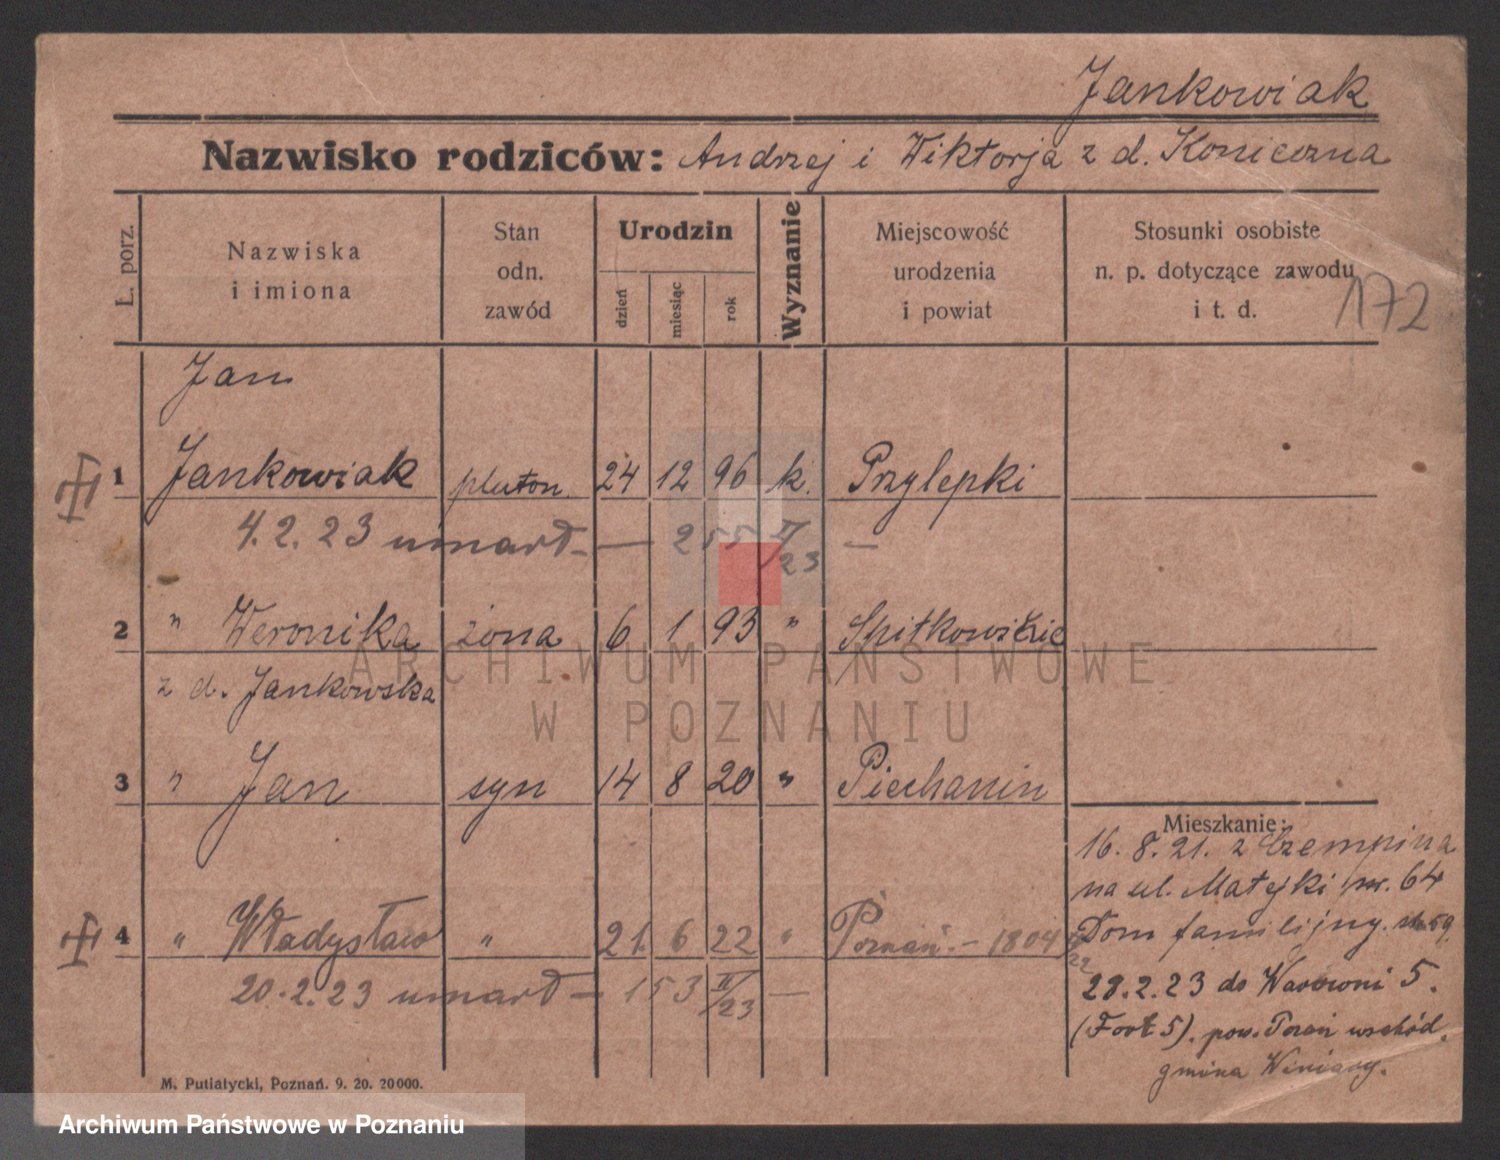 Jankowiak
Nazwisko rodziców: Andrzej i Wiktorja z d. Konieczna
L. porz.
Nazwiska
i imiona
Stan
odn.
zawód
Urodzin
dzień
miesiąc
rok
Wyznanie
Miejscowość
urodzenia
i powiat
Stosunki osobiste
n. p. dotyczące zawodu
i t. d.
172
Jan
1 Jankowiak pluton. 24 12 96 k. Przylepki
4. 2. 23 umarł — 255 II/23 —
2 " Weronika żona 6 1 93 "
z d. Jankowska
3 " Jan syn 14 8 20 " Piechanin
Mieszkanie:
16. 8. 21. z Czempina
na ul. Matejki nr. 64
4 " Władysław " 21. 6 22 " Poznań. – 1804
Dom familijny. 59.
20. 2. 23 umarł — 153 II/23 —
28. 2. 23 do Warowni 5.
(Fort 5). pow. Poznń wschód.
gmina Winiary.
M. Putiatycki, Poznań. 9. 20. 20000.
ARCHIWUM PAŃSTWOWE
W POZNANIU
Archiwum Państwowe w Poznaniu